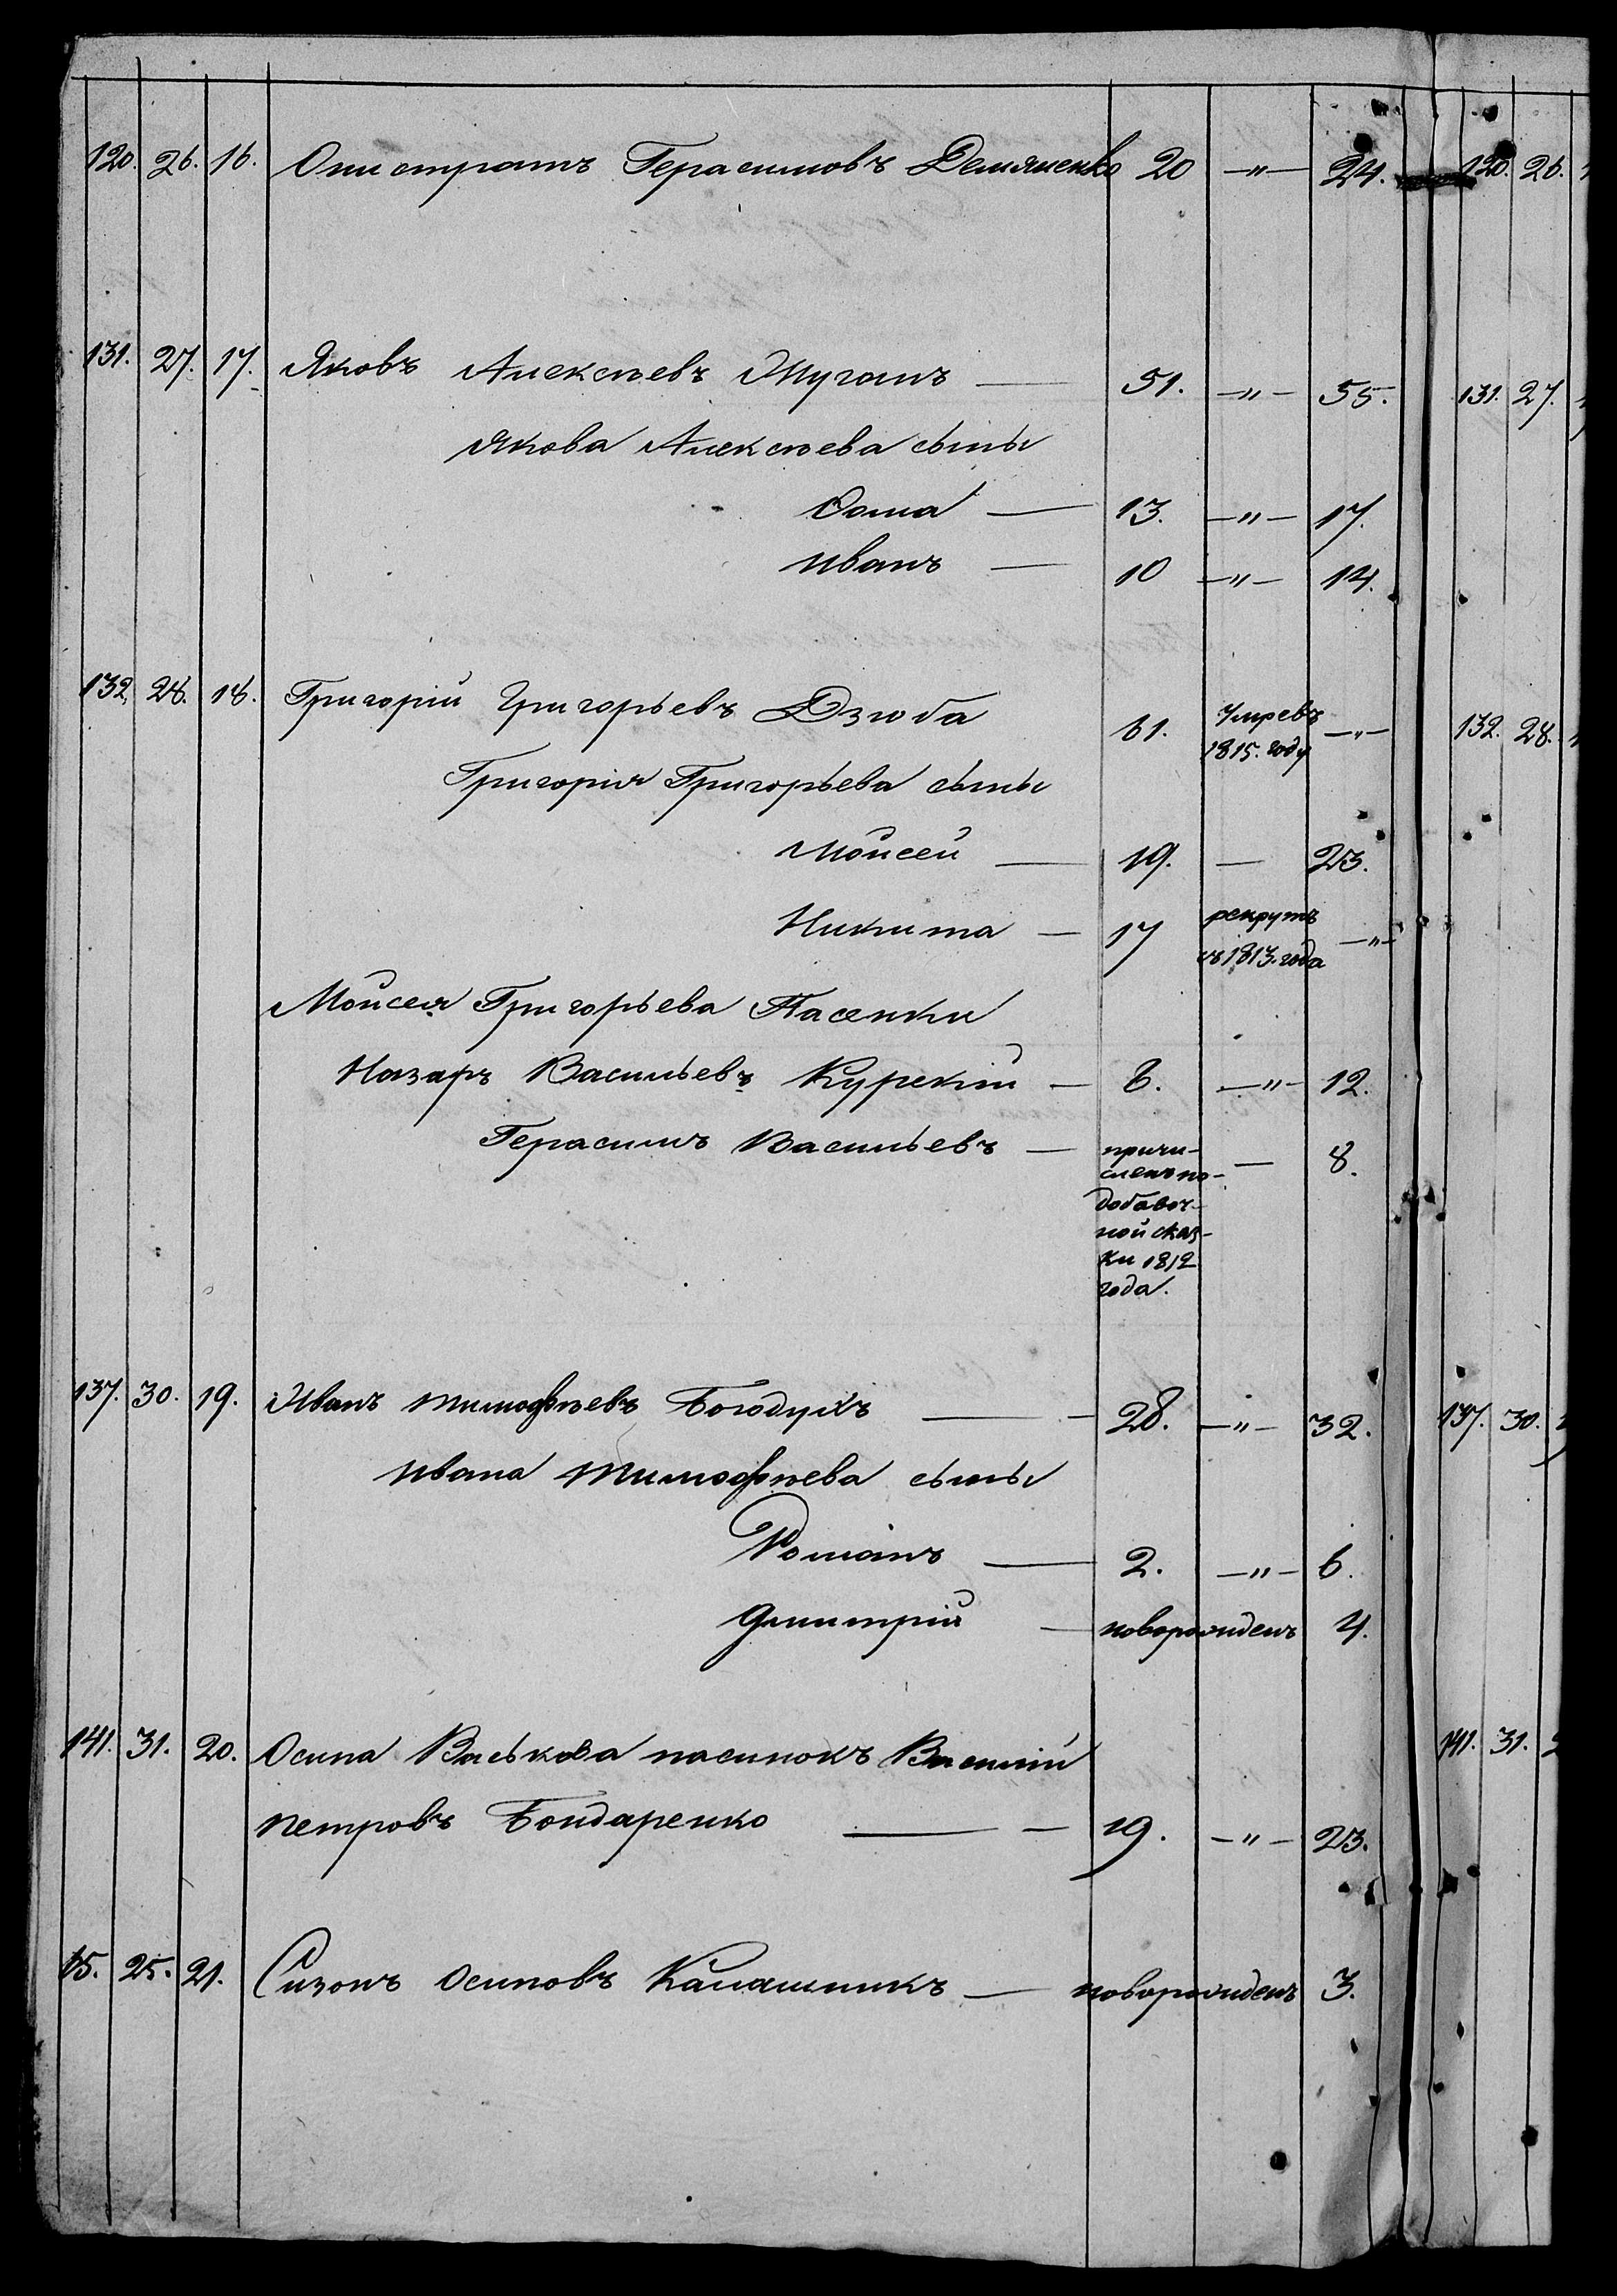 120. 26. 16. Онистратъ Герасимовъ Демяненко 20 —"— 24. 120. 26.
131. 27. 17. Яковъ Алексѣевъ Жуганъ — 51. —"— 55. 131. 27.
Якова Алексѣева сыны
Фома — 13. —"— 17.
Иванъ — 10 —"— 14.
132. 28. 18. Григорій Григорьевъ Дзюба 61. умревъ 1815. году —"— 132. 28.
Григорія Григорьева сыны
Мойсей — 19. — 23.
Никита — 17 рекрутъ съ 1813. года —"—
Мойсея Григорьева Пасенки
Назаръ Васильевъ Курскій — 8. —"— 12.
Герасимъ Васильевъ — причи-
сленъ по — 8.
добавоч-
ной сказ-
ки 1812
года.
137. 30. 19. Иванъ Тимофѣевъ Богодухъ — 28. —"— 32. 137. 30.
Ивана Тимофѣева сыны
Романъ — 2. —"— 6.
Дмитрій — новорожденъ 4.
141. 31. 20. Осипа Васькова пасинокъ Василій 141. 31.
Петровъ Бондаренко — 19. —"— 23.
15. 25. 21. Сизонъ Осиповъ Калашникъ — новорожденъ 3.